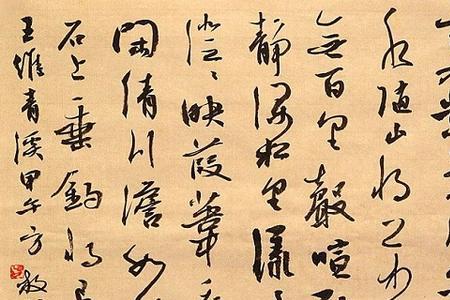 水隨山將万
無百里聲喧
靜深松里漾
澄々映葭葦
閑清川澹如
石上垂釣將已
王維青溪甲午方